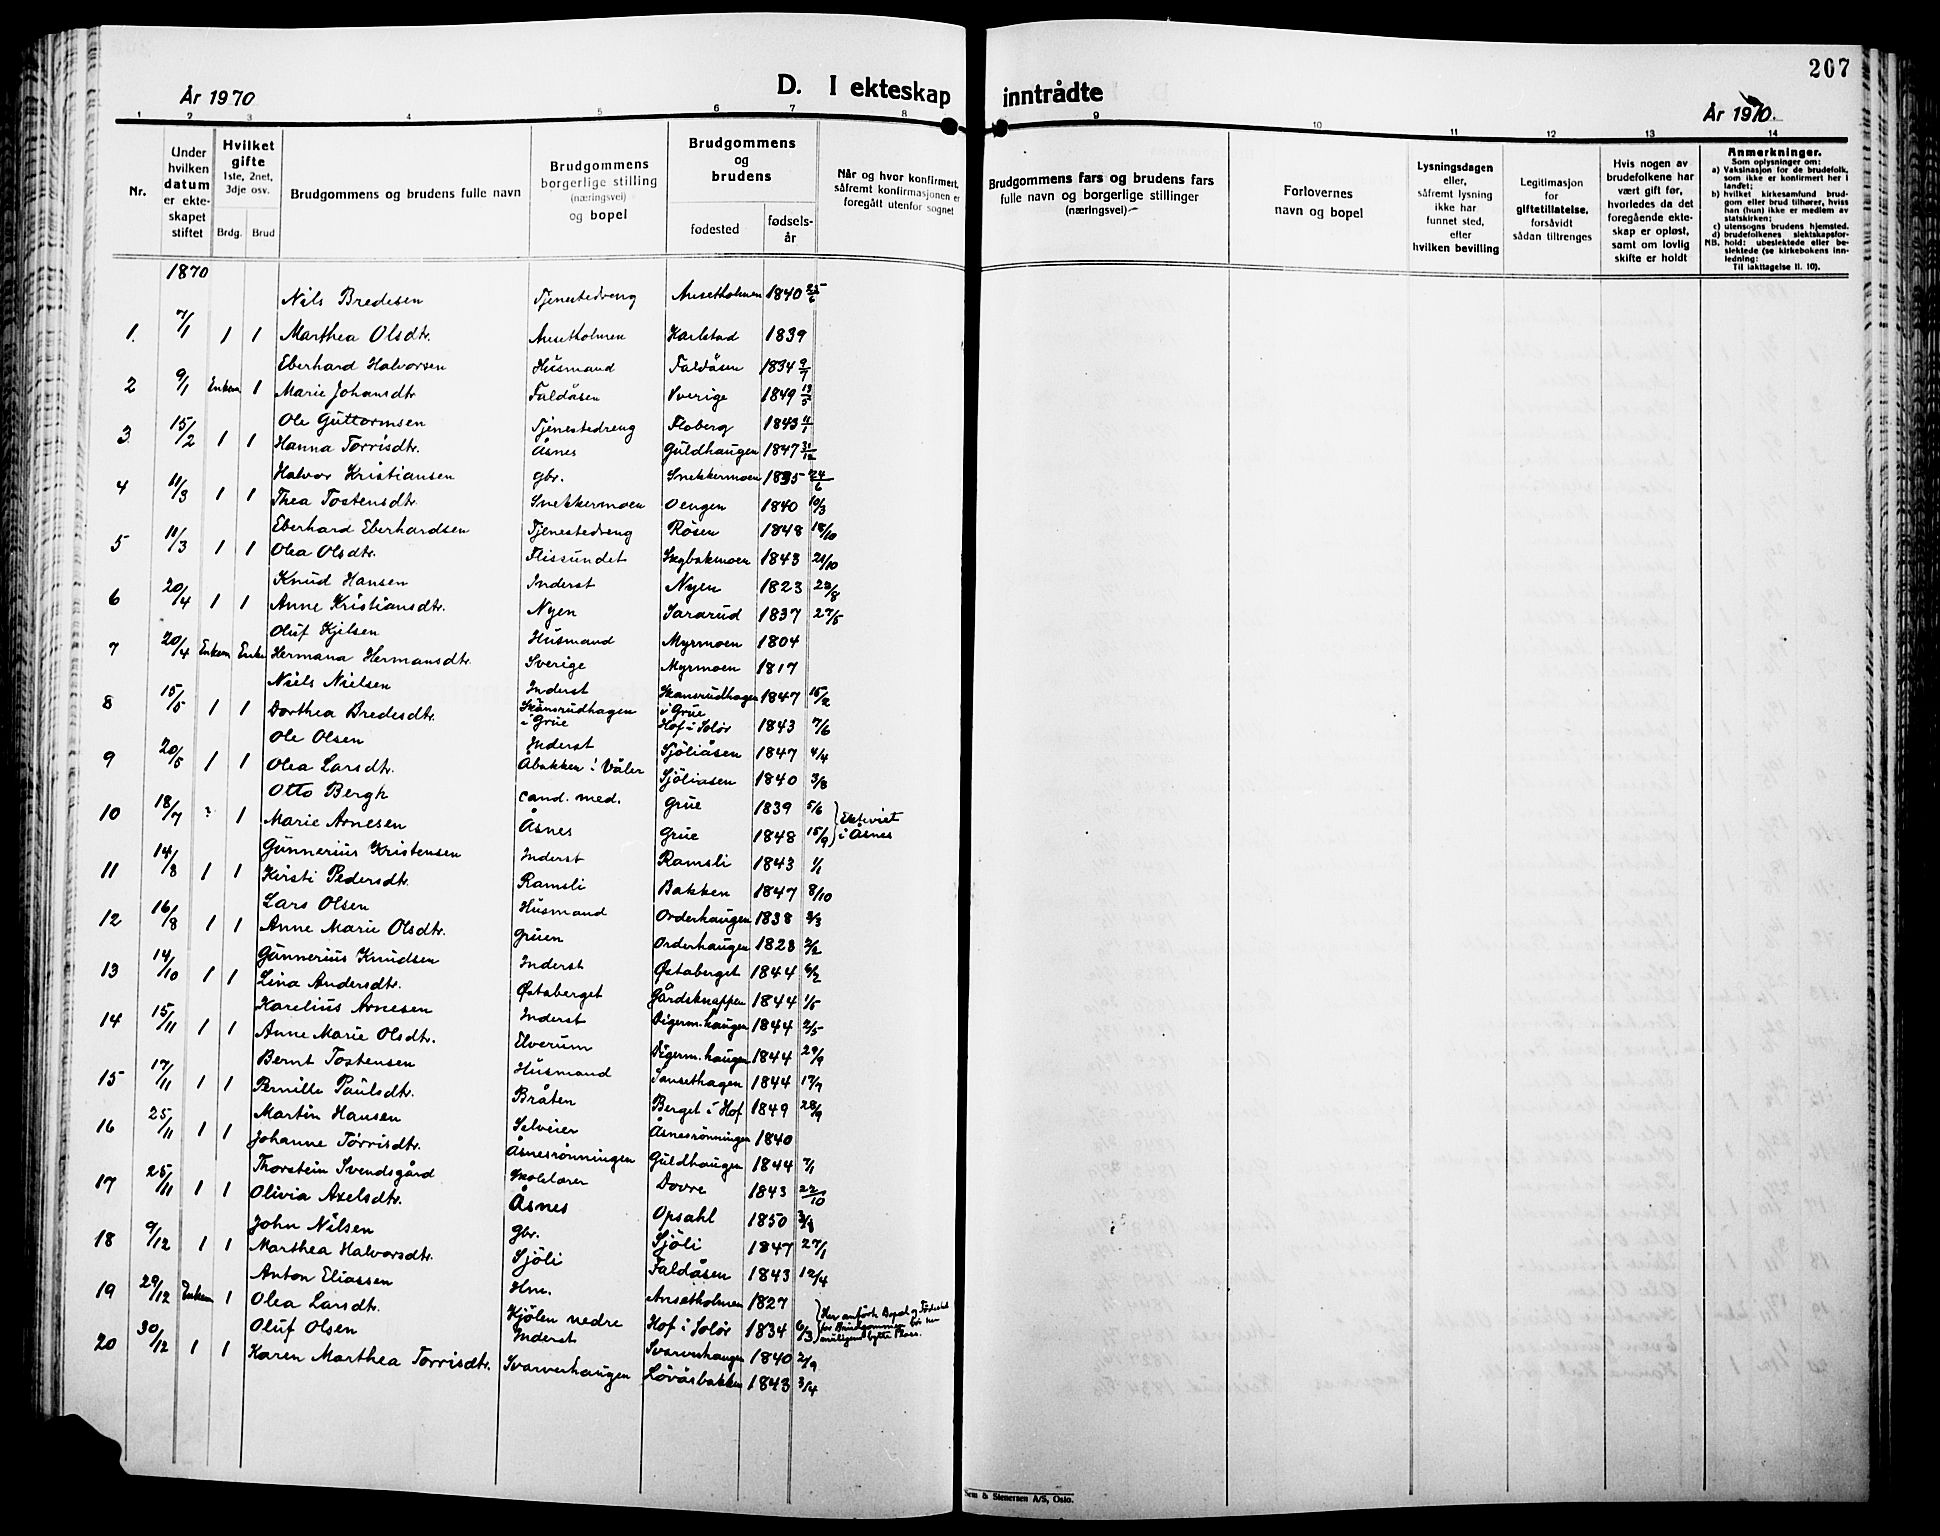 207
År 1970
D. I ekteskap inntrådte
År 1970.
1 2 3 4 5 6 7 8 9 10 11 12 13 14
Nr.
Under hvilken datum er ekteskapet stiftet
Hvilket gifte 1ste, 2net, 3dje osv.
Brdg. Brud
Brudgommens og brudens fulle navn
Brudgommens borgerlige stilling (næringsvei) og bopel
Brudgommens og brudens
fødested
fødselsår
Når og hvor konfirmert, såfremt konfirmasjonen er foregått utenfor sognet
Brudgommens fars og brudens fars fulle navn og borgerlige stillinger (næringsvei)
Forlovernes navn og bopel
Lysningsdagen eller, såfremt lysning ikke har funnet sted, efter hvilken bevilling
Legitimasjon for giftetillatelse, forsåvidt sådan tiltrenges
Hvis nogen av brudefolkene har vært gift før, hvorledes da det foregående ekteskap er opløst, samt om lovlig skifte er holdt
Anmerkninger.
Som oplysninger om:
a) Vaksinasjon for de brudefolk, som ikke er konfirmert her i landet;
b) hvilket kirkesamfund brudgom eller brud tilhører, hviss han (hun) ikke er medlem av statskirken;
c) utensogns brudens hjemsted.
d) brudefolkenes slektskapsforhold: ubeslektede eller beslektede (se kirkebokens innledning:
NB.
Til iakttagelse II. 10).
1870
Nils Bredesen Tjenestedreng Ansetholmen 1840 25/6
1. 7/1 1 1 Marthea Olsdtr. Ansetholmen Karlstad 1839
Eberhard Halvorsen Husmand Faldåsen 1834 9/7
2 9/1 Enkem 1 Marie Johansdtr Faldåsen Sverige 1849 13/5
Ole Guttormsen Tjenestedreng Floberg 1843 4/1
3 15/2 1 1 Hanna Torrisdtr. Åsnes Guldhaugen 1847 31/12
Halvor Kristiansen gbr. Snekkermoen 1835 24/6
4 11/3 1 1 Thea Tostensdtr. Snekkermoen Oengen 1840 10/3
Eberhard Eberhardsen Tjenestedreng Røsen 1848 18/10
5 11/3 1 1 Olea Olsdtr. Flissundet Skybakmoen 1843 21/10
Knud Hansen Inderst Nyen 1823 23/8
6 20/4 1 1 Anne Kristiansdtr. Nyen Sararud 1837 27/5
Oluf Kjelsen Husmand Myrmoen 1804
7 20/4 Enkem Enke Hermana Hermansdtr. Sverige Myrmoen 1817
Niels Nielsen Inderst Skansrudhagen i Grue 1847 15/2
8 15/5 1 1 Dorthea Bredesdtr. Skansrudhagen i Grue Hof i Solør 1843 7/6
Ole Olsen Inderst Sjöliåsen 1847 4/4
9 20/5 1 1 Olea Larsdtr. Åbakken i Våler Sjöliåsen 1840 3/8
Otto Bergh cand. med. Grue 1839 5/6
10 18/7 ? 1 Marie Arnesen Åsnes Grue 1848 15/9 Ektviet i Åsnes
Gunnerius Kristensen Inderst Ramsli 1843 1/1
11 14/8 1 1 Kirsti Pedersdtr. Ramsli Bakken 1847 8/10
Lars Olsen Husmand Orderhaugen 1838 3/3
12 16/8 1 1 Anne Marie Olsdtr. Gruen Orderhaugen 1828 2/2
Gunnerius Knudsen Inderst Østaberget 1844 6/2
13 14/10 1 1 Lina Andersdtr. Østaberget Gårdsknappen 1844 1/5
Karelius Arnesen Inderst Digerm.haugen 1844 2/5
14 15/11 1 1 Anne Marie Olsdtr. Elverum Digerm.haugen 1844 29/9
Bernt Tostensen Husmand Sansethagen 1844 17/7
15 17/11 1 1 Pernille Paulsdtr. Bråten Berget i Hof 1849 28/9
Martin Hansen Selveier Åsnesrønningen 1840
16 25/11 1 1 Johanne Torrisdtr. Åsnesrønningen Guldhaugen 1844 7/1
Thorstein Svendsgård Skolelærer Dovre 1843 22/10
17 25/11 1 1 Olivia Axelsdtr. Åsnes Opsahl 1850 3/8
John Nilsen gbr. Sjöli 1847 27/1
18 9/12 1 1 Marthea Halvorsdtr. Sjöli Faldåsen 1843 12/4
Anton Eliassen Hm. Ansetholmen 1827
19 29/12 Enkem 1 Olea Larsdtr. Kjölen nedre Hof i Solør 1834 6/3 Her anførte Bopel og Födested for Brudgommen bør her muligens bytte Plass.
Oluf Olsen Inderst Svarverhaugen 1840 2/9
20 30/12 1 1 Karen Marthea Torrisdtr. Svarverhaugen Løvåsbakken 1843 3/4
Sem & Stenersen A/S, Oslo.